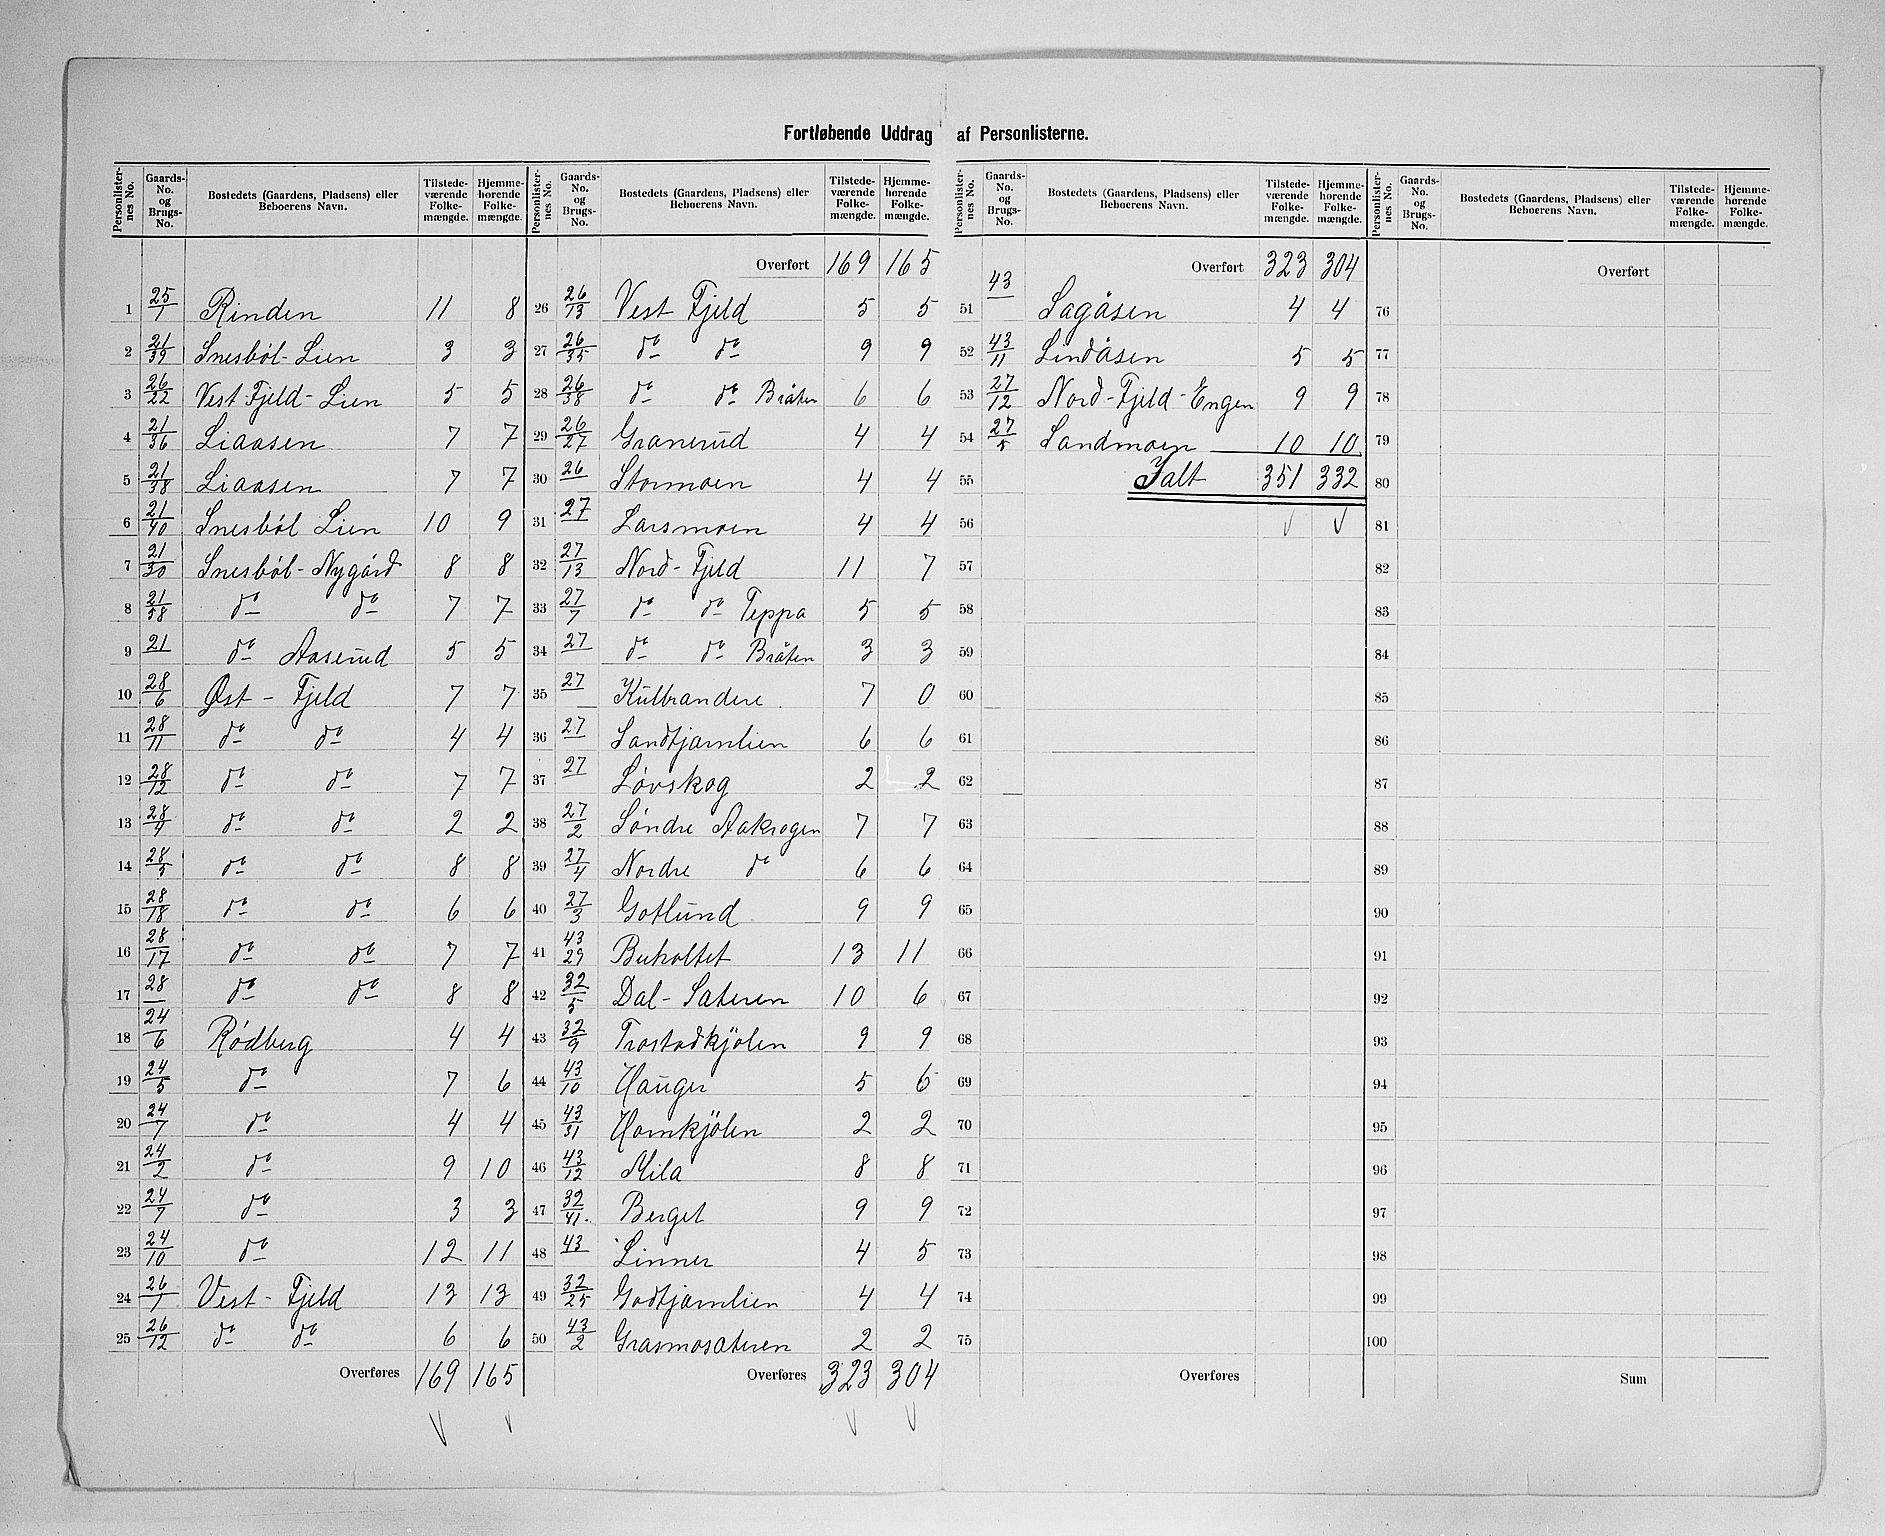 Fortløbende Uddrag af Personlisterne.
Personlisternes No. | Gaards-No. og Brugs-No. | Bostedets (Gaardens, Pladsens) eller Beboerens Navn. | Tilstedeværende Folkemængde. | Hjemmehørende Folkemængde.
1 25/1 Rinden 11 8
2 21/39 Snesböl-Lien 3 3
3 26/22 Vest-Fjeld-Lien 5 5
4 21/36 Liaasen 7 7
5 21/38 Liaasen 7 7
6 21/40 Snesböl Lien 10 9
7 21/30 Snesböl-Nygård 8 8
8 21/58 do do 7 7
9 21 do Aaserud 5 5
10 28/6 Øst-Fjeld 7 7
11 28/11 do do 4 4
12 28/12 do do 7 7
13 28/4 do do 2 2
14 28/5 do do 8 8
15 28/18 do do 6 6
16 28/17 do do 7 7
17 28 do do 8 8
18 24/6 Rödberg 4 4
19 24/5 do 7 6
20 24/7 do 4 4
21 24/2 do 9 10
22 24/7 do 3 3
23 24/10 do 12 11
24 26/1 Vest-Fjeld 13 13
25 26/12 do do 6 6
Overføres 169 165
Personlisternes No. | Gaards-No. og Brugs-No. | Bostedets (Gaardens, Pladsens) eller Beboerens Navn. | Tilstedeværende Folkemængde. | Hjemmehørende Folkemængde.
Overført 169 165
26 26/13 Vest Fjeld 5 5
27 26/35 do do 9 9
28 26/38 do do Bråten 6 6
29 26/27 Granerud 4 4
30 26 Stormoen 4 4
31 27 Larsmoen 4 4
32 27/13 Nord-Fjeld 11 7
33 27/7 do do Teppa 5 5
34 27 do do Bråten 3 3
35 27 Kulbrandere 7 0
36 27 Sandtjærnlien 6 6
37 27 Lövskog 2 2
38 27/2 Söndre Aakrogen 7 7
39 27/4 Nordre do 6 6
40 27/3 Gotlund 9 9
41 43/29 Bukoltet 13 11
42 32/5 Dal-Sæteren 10 6
43 32/9 Trostadkjölen 9 9
44 43/10 Hauger 5 6
45 43/31 Hornkjölen 2 2
46 43/12 Mila 8 8
47 32/41. Berget 9 9
48 43 Linner 4 5
49 32/25 Godtjærnlien 4 4
50 43/2 Grasmosæteren 2 2
Overføres 323 304
Personlisternes No. | Gaards-No. og Brugs-No. | Bostedets (Gaardens, Pladsens) eller Beboerens Navn. | Tilstedeværende Folkemængde. | Hjemmehørende Folkemængde.
Overført 323 304
51 43 Sagåsen 4 4
52 43/11 Lindåsen 5 5
53 27/12 Nord-Fjeld-Engen 9 9
54 27/5 Sandmoen 10 10
55 Ialt 351 332
56
57
58
59
60
61
62
63
64
65
66
67
68
69
70
71
72
73
74
75
Overføres
Personlisternes No. | Gaards-No. og Brugs-No. | Bostedets (Gaardens, Pladsens) eller Beboerens Navn. | Tilstedeværende Folkemængde. | Hjemmehørende Folkemængde.
Overført
76
77
78
79
80
81
82
83
84
85
86
87
88
89
90
91
92
93
94
95
96
97
98
99
100
Sum